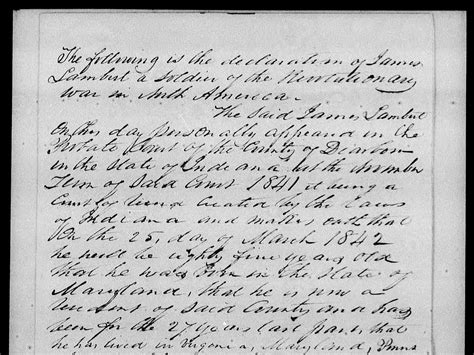 The following is the declaration of James
Lambert a soldier of the Revolutionary
war in North America.
The Said James Lambert
On this day personally appeared in the
Probate Court of the County of Dearborn
in the State of Indiana at the
Term of Said Court 1841 it being a
Court of being created by the Laws
of Indiana and makes oath that
On the 25, day of March 1842
he will be eighty five years old
that he was born in the State of
Maryland, that he is now a
of Said County, and has
been for the 27 years last past, that
he has lived in Virginia, Maryland, Penns